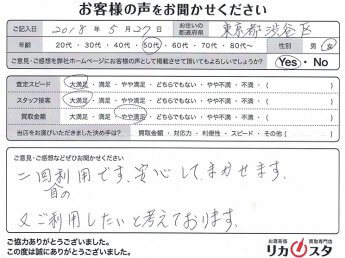 お客様の声をお聞かせください
ご記入日 2018年5月27日 お住いの都道府県 東京都渋谷区
年齢 20代・30代・40代・50代・60代・70代・80代〜 性別 男・女
ご意見・ご感想を弊社ホームページにお客様の声として掲載させて頂いてもよろしいでしょうか? Yes・No
査定スピード 大満足・満足・やや満足・どちらでもない・やや不満・不満 ( )
スタッフ接客 大満足・満足・やや満足・どちらでもない・やや不満・不満 ( )
買取金額 大満足・満足・やや満足・どちらでもない・やや不満・不満 ( )
当店をお選びいただきました決め手は? 買取金額・対応力・利便性・スピード・その他 ( )
ご意見・ご感想などぜひお聞かせください
二回目の利用です。安心してまかせます。
又ご利用したいと考えております。
ご協力ありがとうございました。
この度は誠にありがとうございました。
お酒高価買取専門店
リカスタ